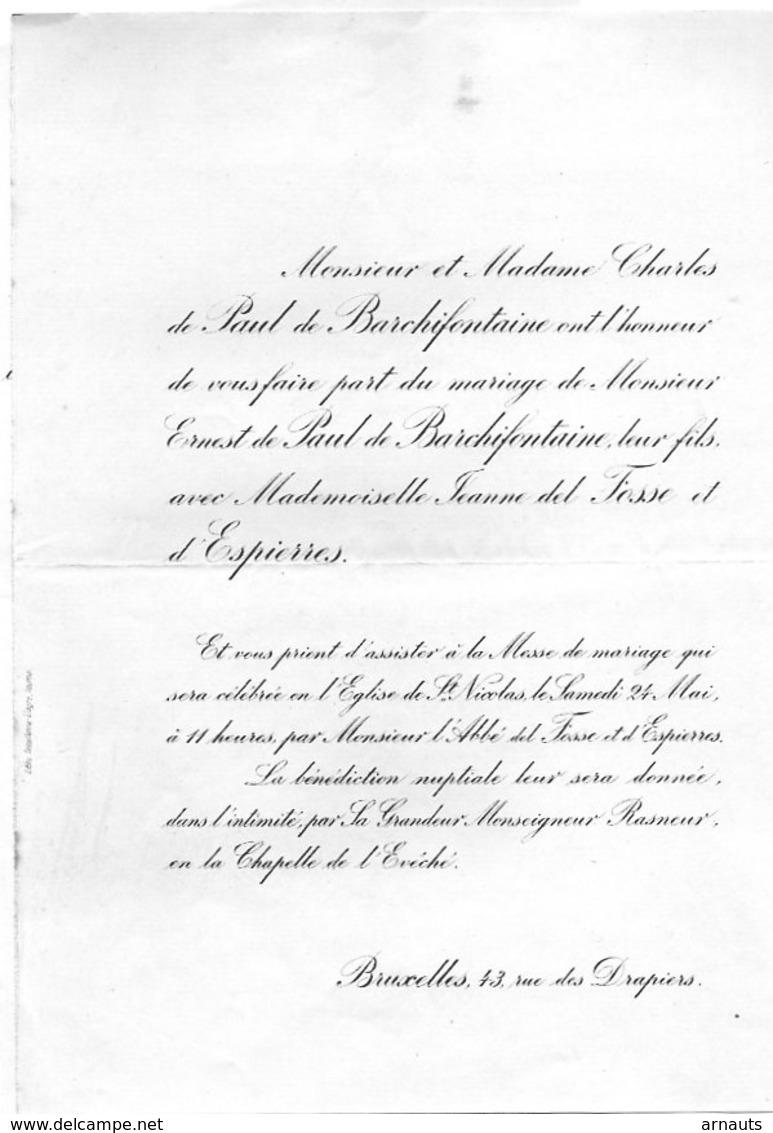 Monsieur et Madame Charles
de Paul de Barchifontaine ont l'honneur
de vous faire part du mariage de Monsieur
Ernest de Paul de Barchifontaine, leur fils,
avec Mademoiselle Jeanne del Fosse et
d'Espierres.
Et vous prient d'assister à la Messe de mariage qui
sera célébrée en l'Eglise de St. Nicolas, le Samedi 24 Mai,
à 11 heures, par Monsieur l'Abbé del Fosse et d'Espierres.
La bénédiction nuptiale leur sera donnée,
dans l'intimité, par Sa Grandeur Monseigneur Rasneur,
en la Chapelle de l'Evêché.
Bruxelles, 43, rue des Drapiers.
www.delcampe.net
arnauts